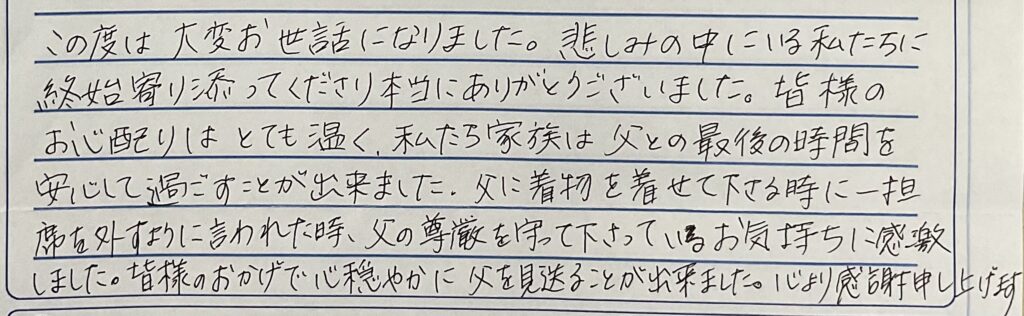 この度は 大変お世話になりました。悲しみの中にいる私たちに
終始寄り添ってくださり本当にありがとうございました。皆様の
お心配りは とても温く、私たち家族は 父との最後の時間を
安心して過ごすことが出来ました。父に着物を着せて下さる時に一担
席を外すように言われた時、父の尊厳を守って下さっているお気持ちに感激
しました。皆様のおかげで心穏やかに 父を見送ることが出来ました。心より感謝申し上げます